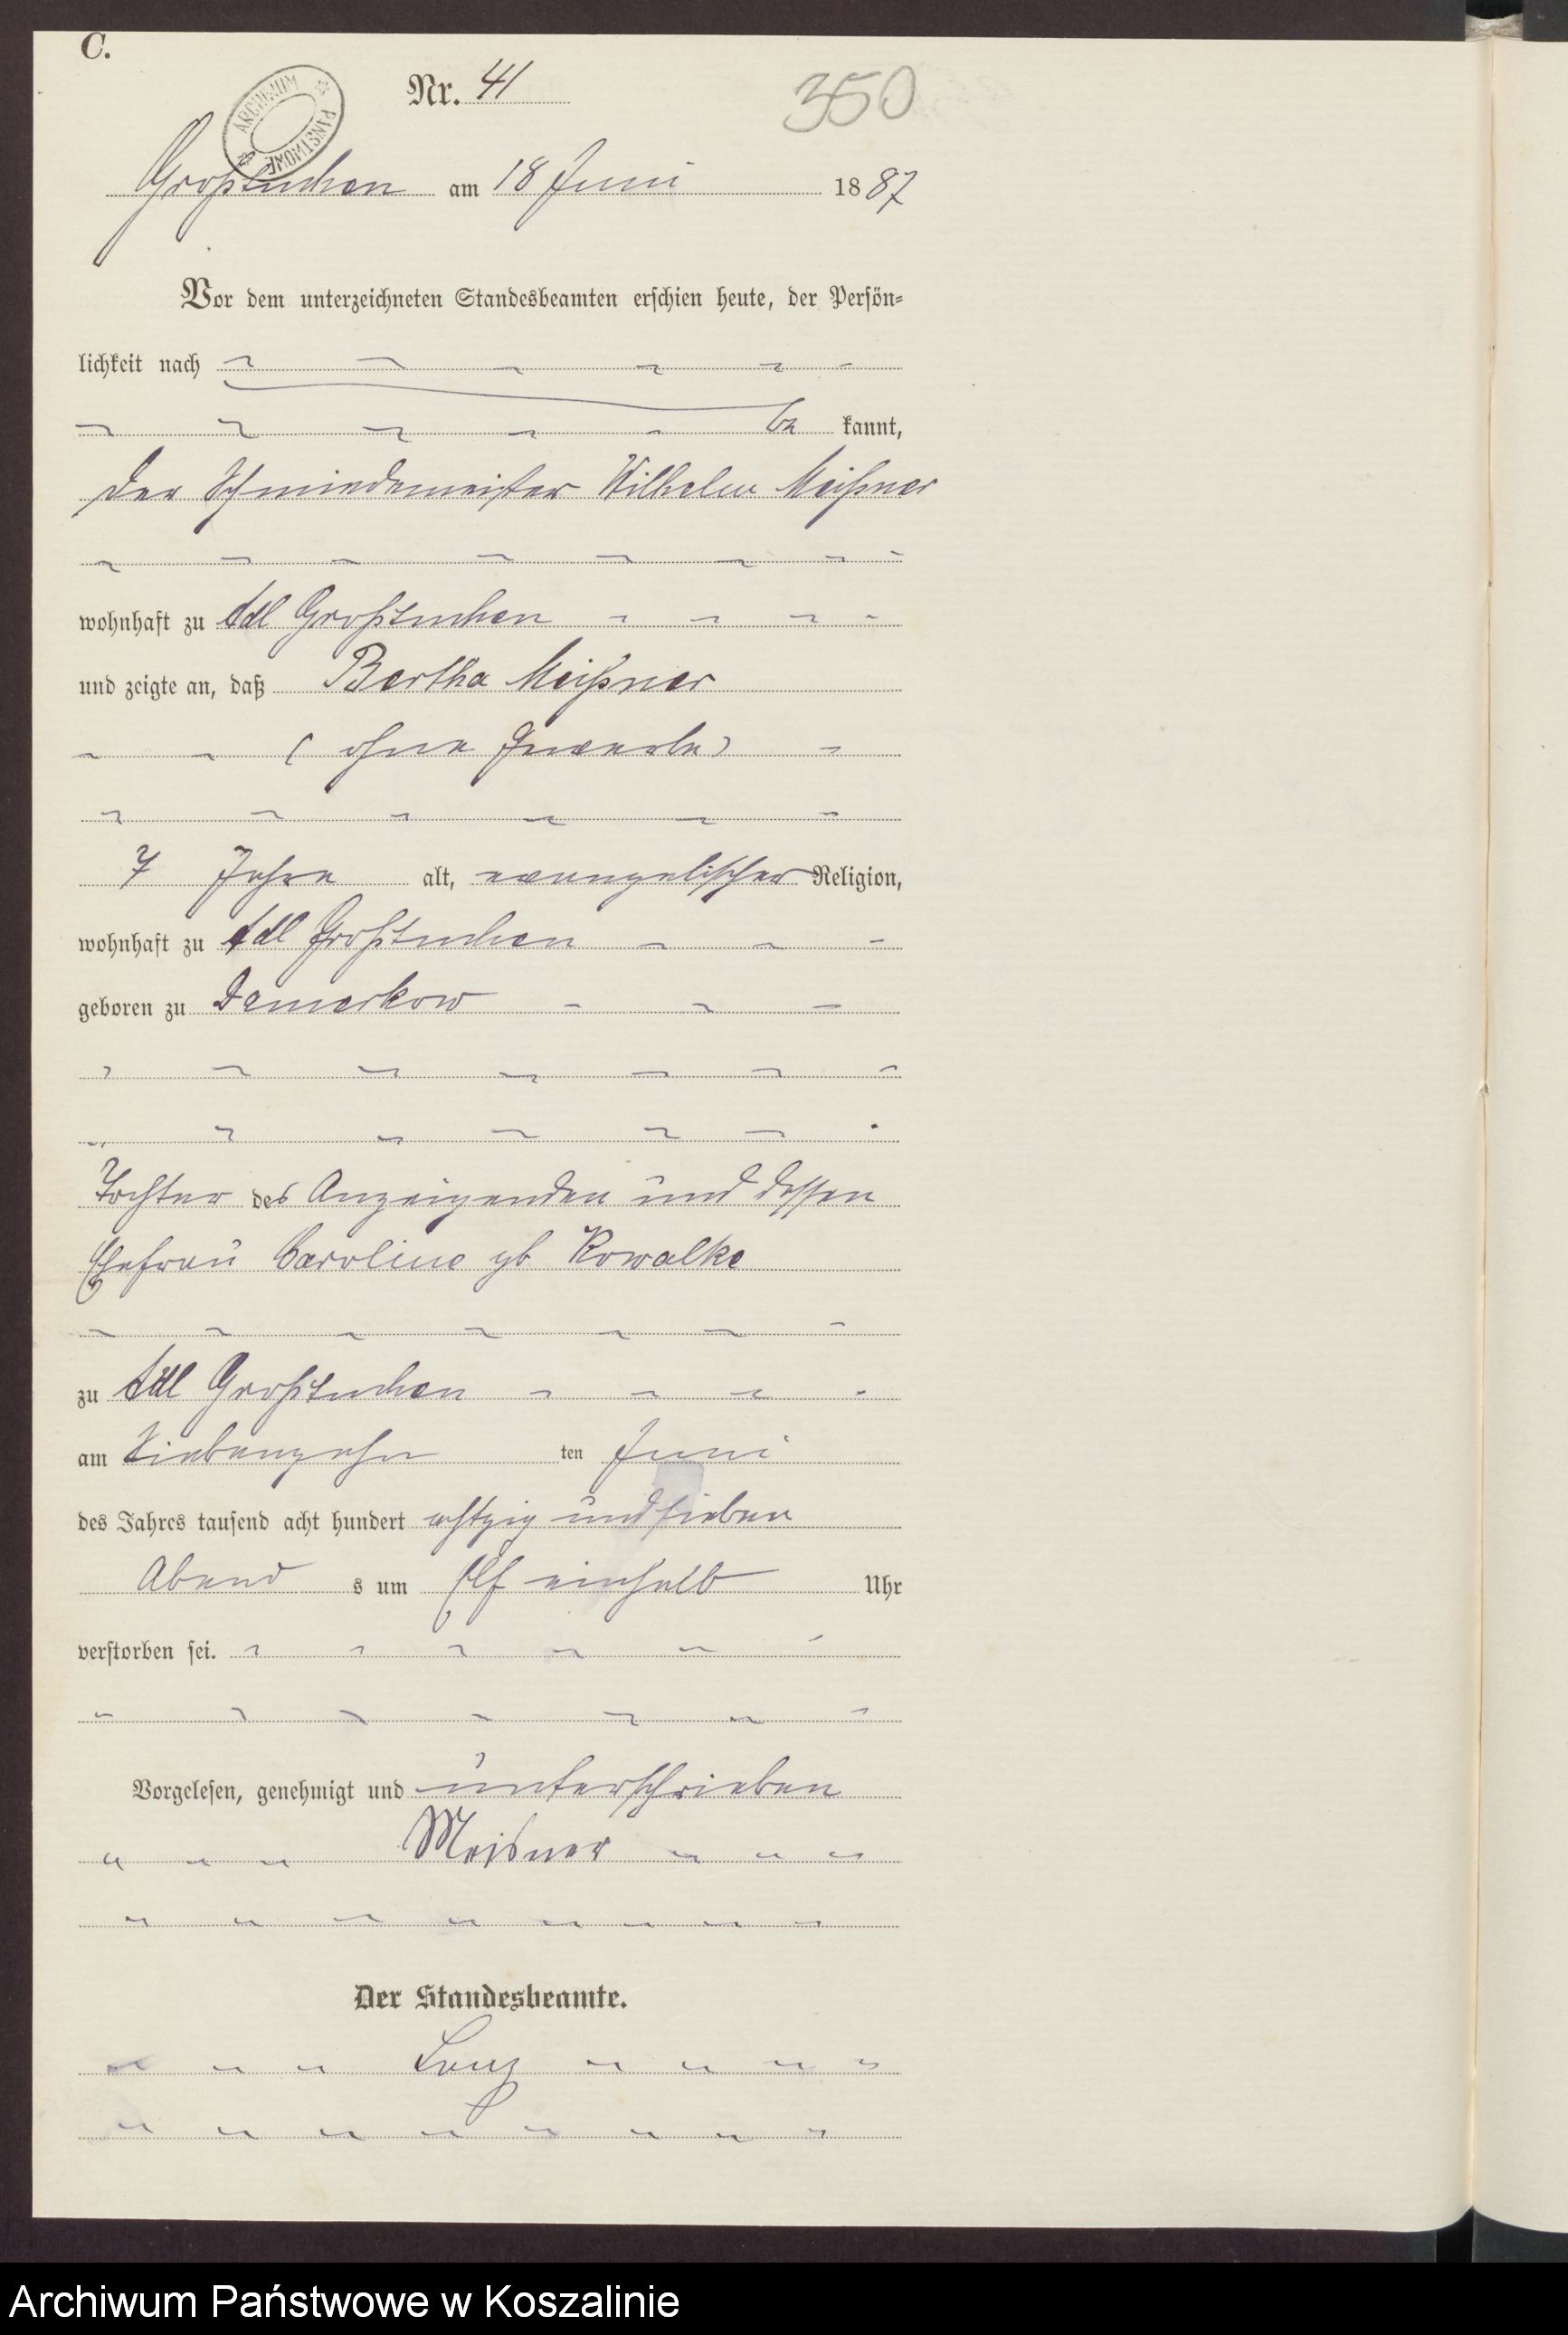 C.
ARCHIWUM PAŃSTWOWE
Nr. 41
350
Großtuchen am 18 Juni 1887
Vor dem unterzeichneten Standesbeamten erschien heute, der Persön-
lichkeit nach
be kannt,
der Schmiedemeister Wilhelm Meißner
wohnhaft zu Adl Großtuchen
und zeigte an, daß Bertha Meißner
(ohne Gewerbe)
7 Jahre alt, evangelischer Religion,
wohnhaft zu Adl Großtuchen
geboren zu Damerkow
Tochter des Anzeigenden und dessen
Ehefrau Caroline gb Kowalke
zu Adl Großtuchen
am Siebenzehn ten Juni
des Jahres tausend acht hundert achtzig und sieben
Abend s um Elf einhalb Uhr
verstorben sei.
Vorgelesen, genehmigt und unterschrieben
Meisner
Der Standesbeamte.
Lenz
Archiwum Państwowe w Koszalinie